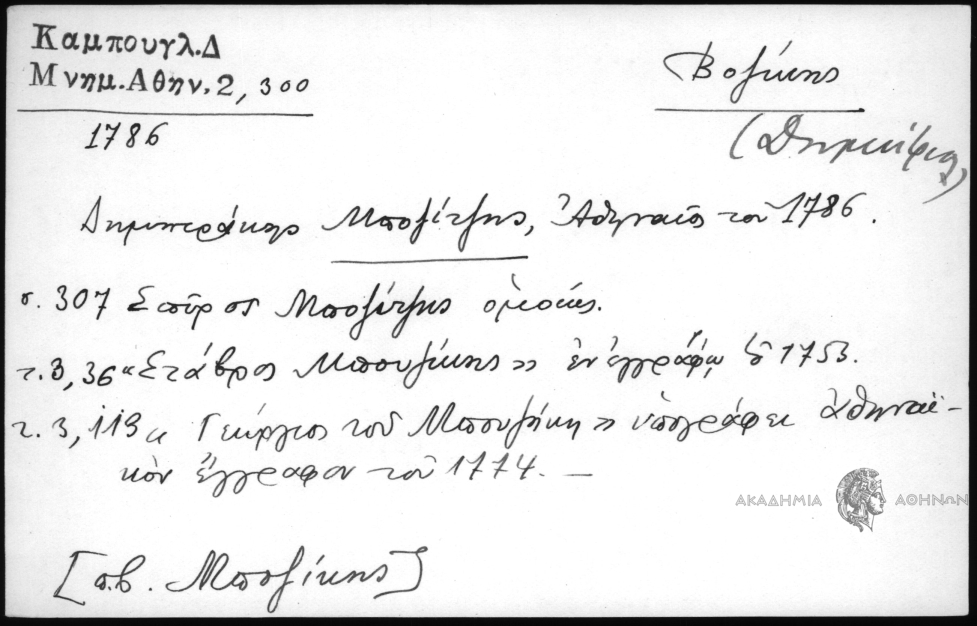 Καμπουγλ.Δ
Μνημ.Αθην.2, 300
Βοζίκης
1786
(Δημητρ
Δημητράκης Μποζίτζης, Ἀθηναῖος τοῦ 1786.
σ. 307 Σπῦρος Μποζίτζης ὁμοίως.
τ.3, 36 «Στάβρος Μπουζίκης» ἐν ἐγγράφῳ τοῦ 1753.
τ.3, 113 « Γεώργιος τοῦ Μπουζίκη» ὑπογράφει ἀθηναϊ-
κὸν ἔγγραφον τοῦ 1774. —
ΑΚΑΔΗΜΙΑ ΑΘΗΝΩΝ
[π.β. Μποζίκης]